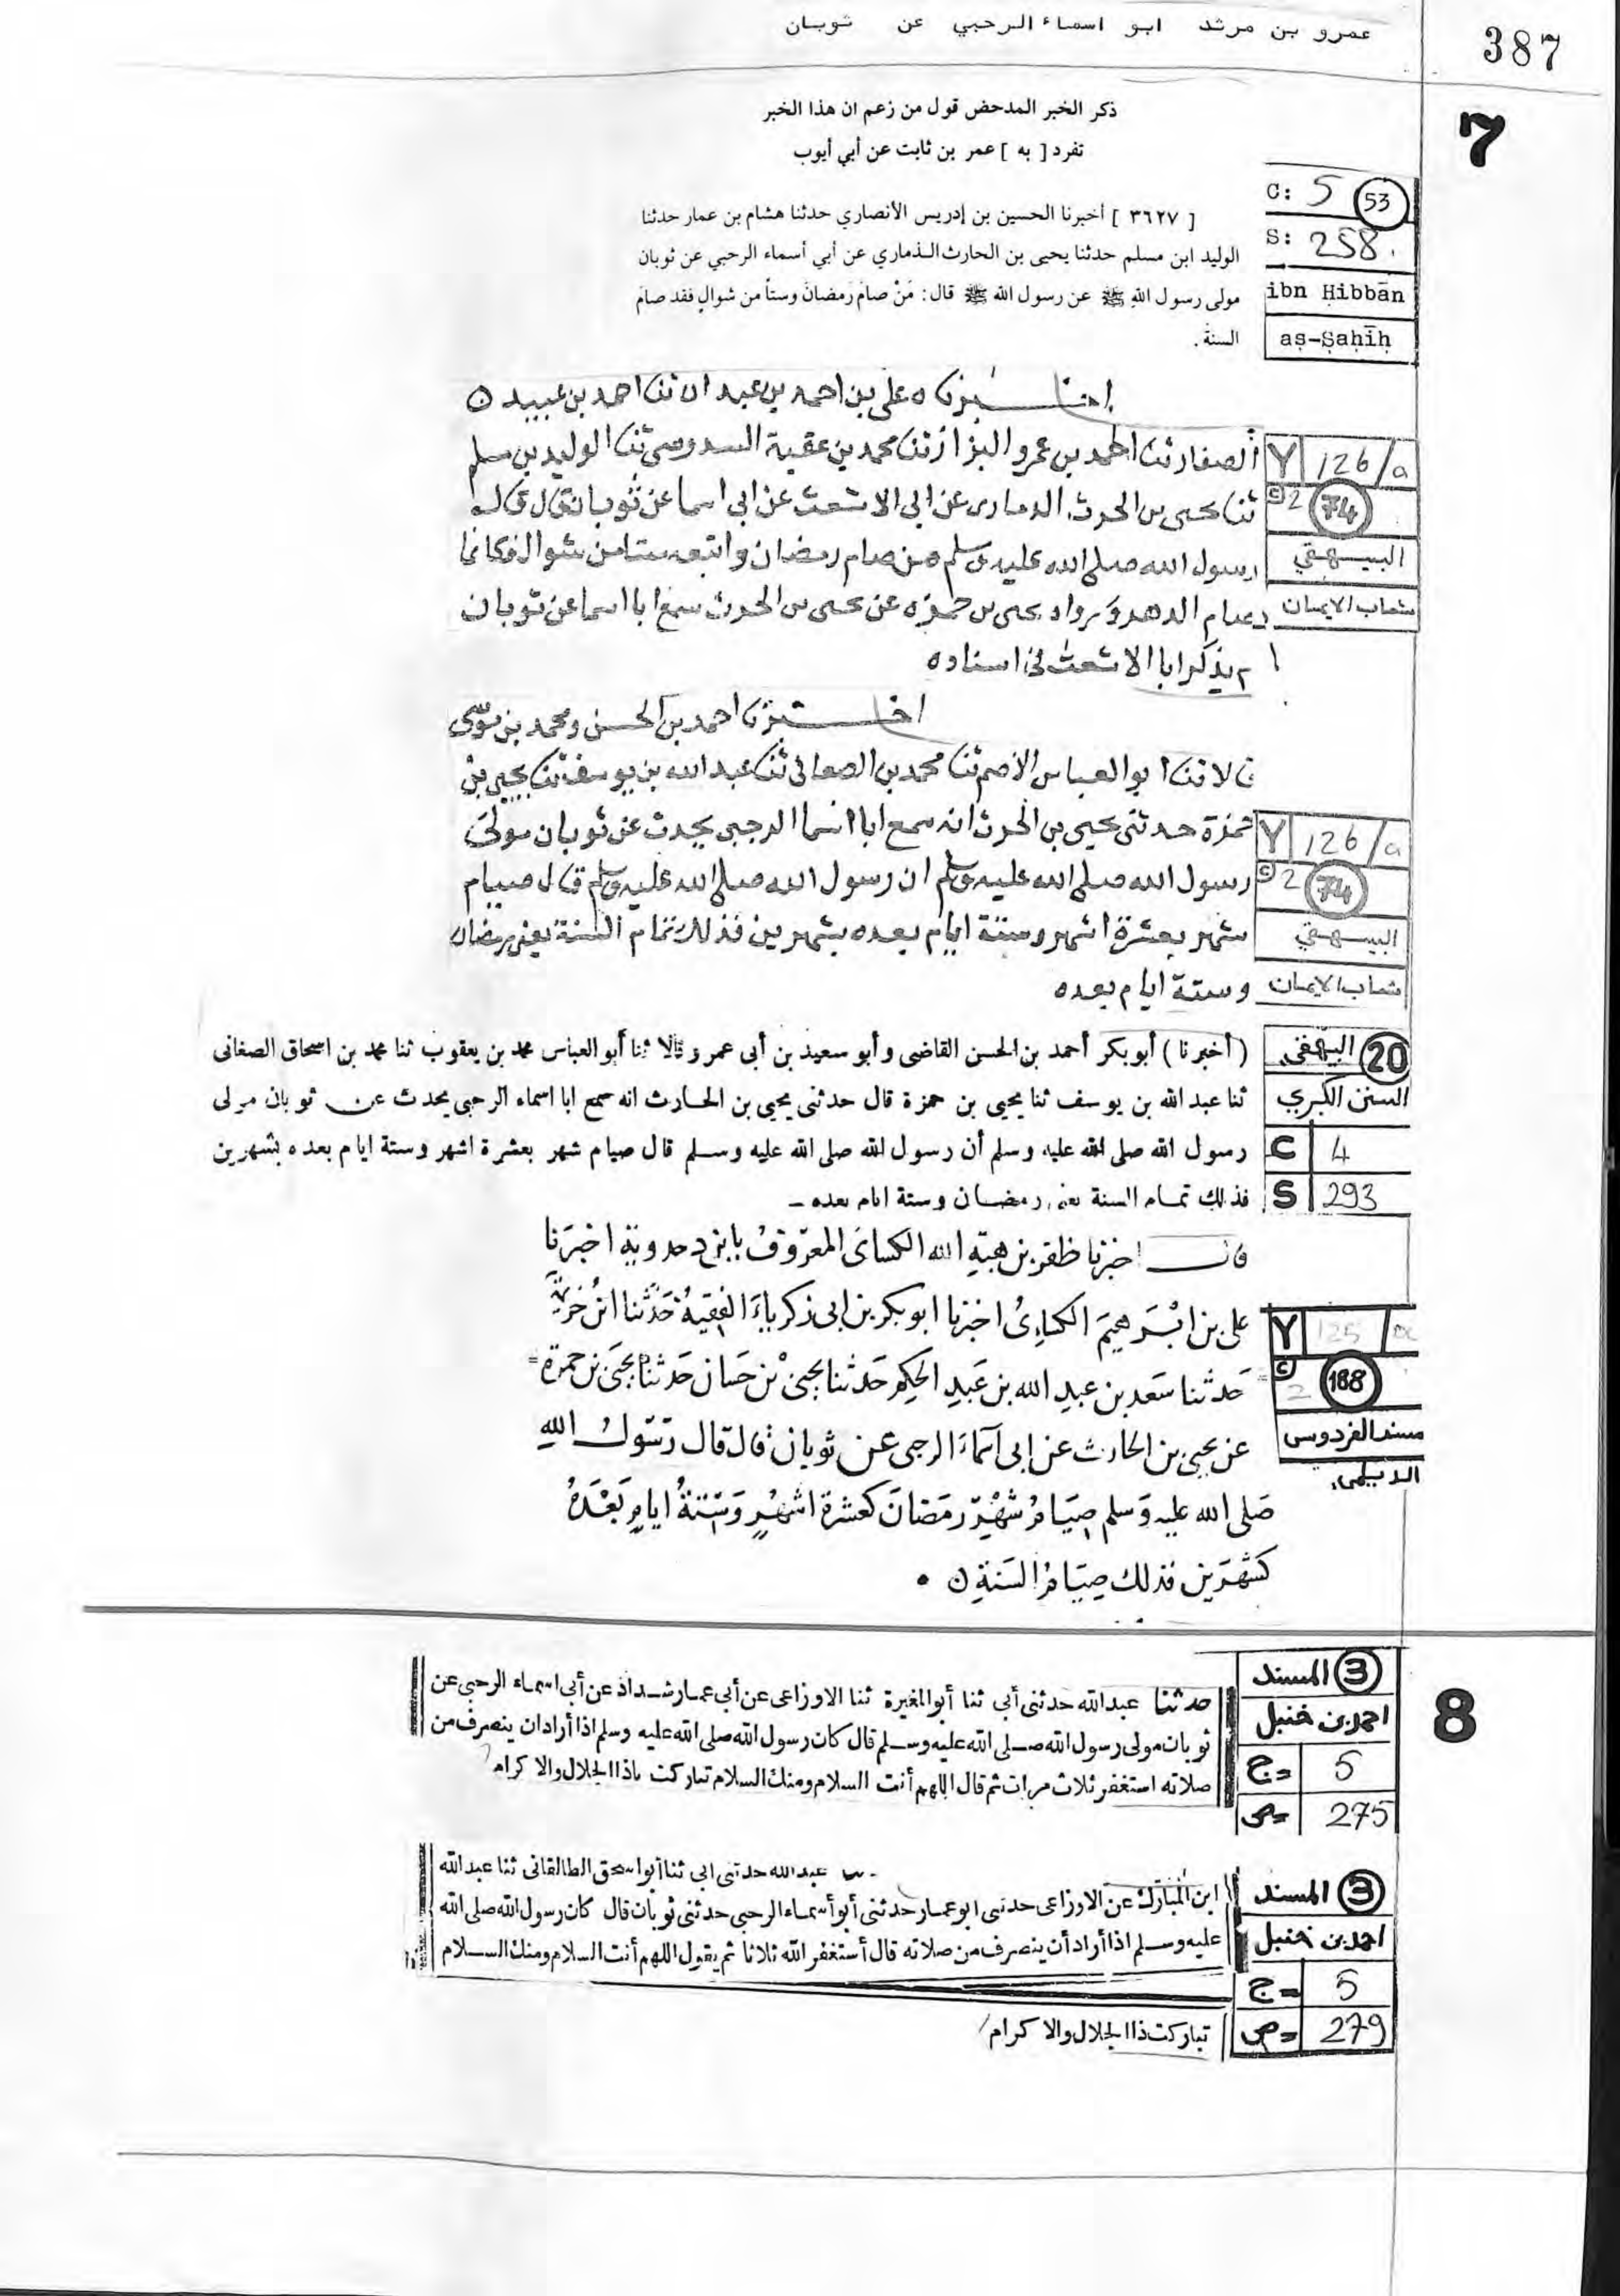 387
عمرو بن مرثد ابو اسماء الرحبي عن ثوبان
7
ذكر الخبر المدحض قول من زعم ان هذا الخبر
تفرد [ به ] عمر بن ثابت عن أبي أيوب
C: 5 53
S: 258
ibn Ḥibbān
aṣ-Ṣaḥīḥ
[ ٣٦٢٧ ] أخبرنا الحسين بن إدريس الأنصاري حدثنا هشام بن عمار حدثنا
الوليد ابن مسلم حدثنا يحيى بن الحارث الذماري عن أبي أسماء الرحبي عن ثوبان
مولى رسول الله ﷺ عن رسول الله ﷺ قال: مَنْ صامَ رَمضانَ وستاً من شوالٍ فقد صامَ
السنة .
اخبرنا علي بن احمد بن عبدان ثنا احمد بن عبيد
Y 126/a
© 2 74
البيهقي
شعاب الايمان
الصفار ثنا احمد بن عمرو البزار ثنا محمد بن عقبة السدوسي ثنا الوليد بن مسلم
ثنا يحيى بن الحرث الدماري عن ابي الاشعث عن ابي اسما عن ثوبان قال قال
رسول الله صلى الله عليه وسلم من صام رمضان واتبعه ستا من شوال فكانما
صام الدهر ورواه يحيى بن حمزه عن يحيى بن الحرث سمع ابا اسما عن ثوبان
لم يذكر ابا الاشعث في اسناده
اخبرنا احمد بن الحسن ومحمد بن موسى
قالا ثنا ابو العباس الاصم ثنا محمد بن الصغاني ثنا عبد الله بن يوسف ثنا يحيى بن
Y 126/a
© 2 74
البيهقي
شعاب الايمان
حمزة حدثني يحيى بن الحرث انه سمع ابا اسما الرحبي يحدث عن ثوبان مولى
رسول الله صلى الله عليه وسلم ان رسول الله صلى الله عليه وسلم قال صيام
شهر بعشرة اشهر وستة ايام بعده بشهرين فذلك تمام السنة يعني رمضان
وستة ايام بعده
20 البيهقى
السنن الكبري
C 4
S 293
( أخبرنا ) أبو بكر أحمد بن الحسن القاضى وأبو سعيد بن أبى عمرو قالا ثنا أبو العباس محمد بن يعقوب ثنا محمد بن اسحاق الصغانى
ثنا عبد الله بن يوسف ثنا يحيى بن حمزة قال حدثنى يحيى بن الحارث انه سمع ابا اسماء الرحبى يحدث عن ثوبان مولى
رسول الله صلى الله عليه وسلم أن رسول الله صلى الله عليه وسلم قال صيام شهر بعشرة اشهر وستة ايام بعده بشهرين
فذلك تمام السنة يعنى رمضان وستة ايام بعده ـ
قال اخبرنا ظفر بن هبة الله الكسائ المعروف با اخبرنا
Y 125
© 2 188
مسند الفردوس
الديلمى
على بن ابرهيم اخبرنا ابو بكر بن ابى زكرياء الفقيه حدثنا ابن
حدثنا سعد بن عبد الله بن عبد الحكم حدثنا يحيى بن حسان حدثنا يحيى بن حمزة
عن يحيى بن الحارث عن ابى اسماء الرحبى عن ثوبان قال قال رسول الله
صلى الله عليه وسلم صيام شهر رمضان كعشرة اشهر وستة ايام بعده
كشهرين فذلك صيام السنة
8
3 المسند
احمد بن حنبل
ج= 5
ص= 275
حدثنا عبد الله حدثنى أبى ثنا أبو المغيرة ثنا الاوزاعى عن أبى عمار شداد عن أبى اسماء الرحبى عن
ثوبان مولى رسول الله صلى الله عليه وسلم قال كان رسول الله صلى الله عليه وسلم اذا أراد ان ينصرف من
صلاته استغفر ثلاث مرات ثم قال اللهم أنت السلام ومنك السلام تباركت ياذا الجلال والاكرام
3 المسند
احمد بن حنبل
ج= 5
ص= 279
عبد الله حدثنى ابى ثنا أبو اسحق الطالقانى ثنا عبد الله
ابن المبارك عن الاوزاعى حدثنى ابو عمار حدثنى أبو أسماء الرحبى حدثنى ثوبان قال كان رسول الله صلى الله
عليه وسلم اذا أراد أن ينصرف من صلاته قال أستغفر الله ثلاثا ثم يقول اللهم أنت السلام ومنك السلام
تباركت ذا الجلال والاكرام